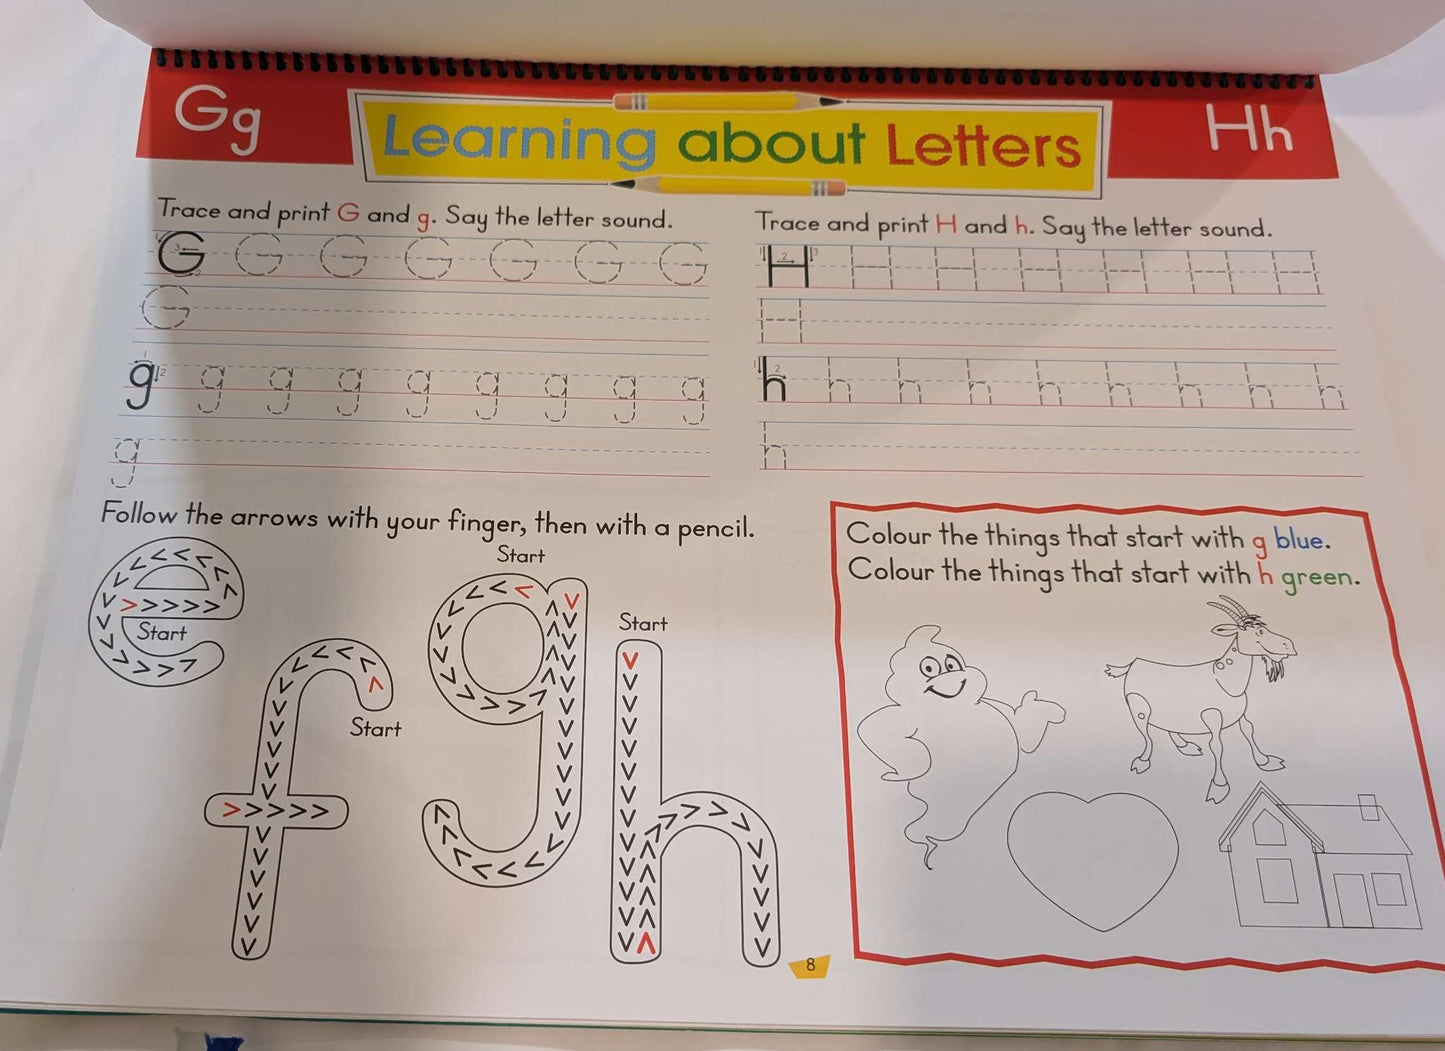 Gg
Learning about Letters
Hh
Trace and print G and g. Say the letter sound.
1 G 3 2 G G G G G G
G
1 g 2 g g g g g g g g
g
Trace and print H and h. Say the letter sound.
1 H 2 3 H H H H H H
H
1 h 2 h h h h h h h h
h
Follow the arrows with your finger, then with a pencil.
e
Start
f
Start
Start
g
Start
h
Colour the things that start with g blue.
Colour the things that start with h green.
8